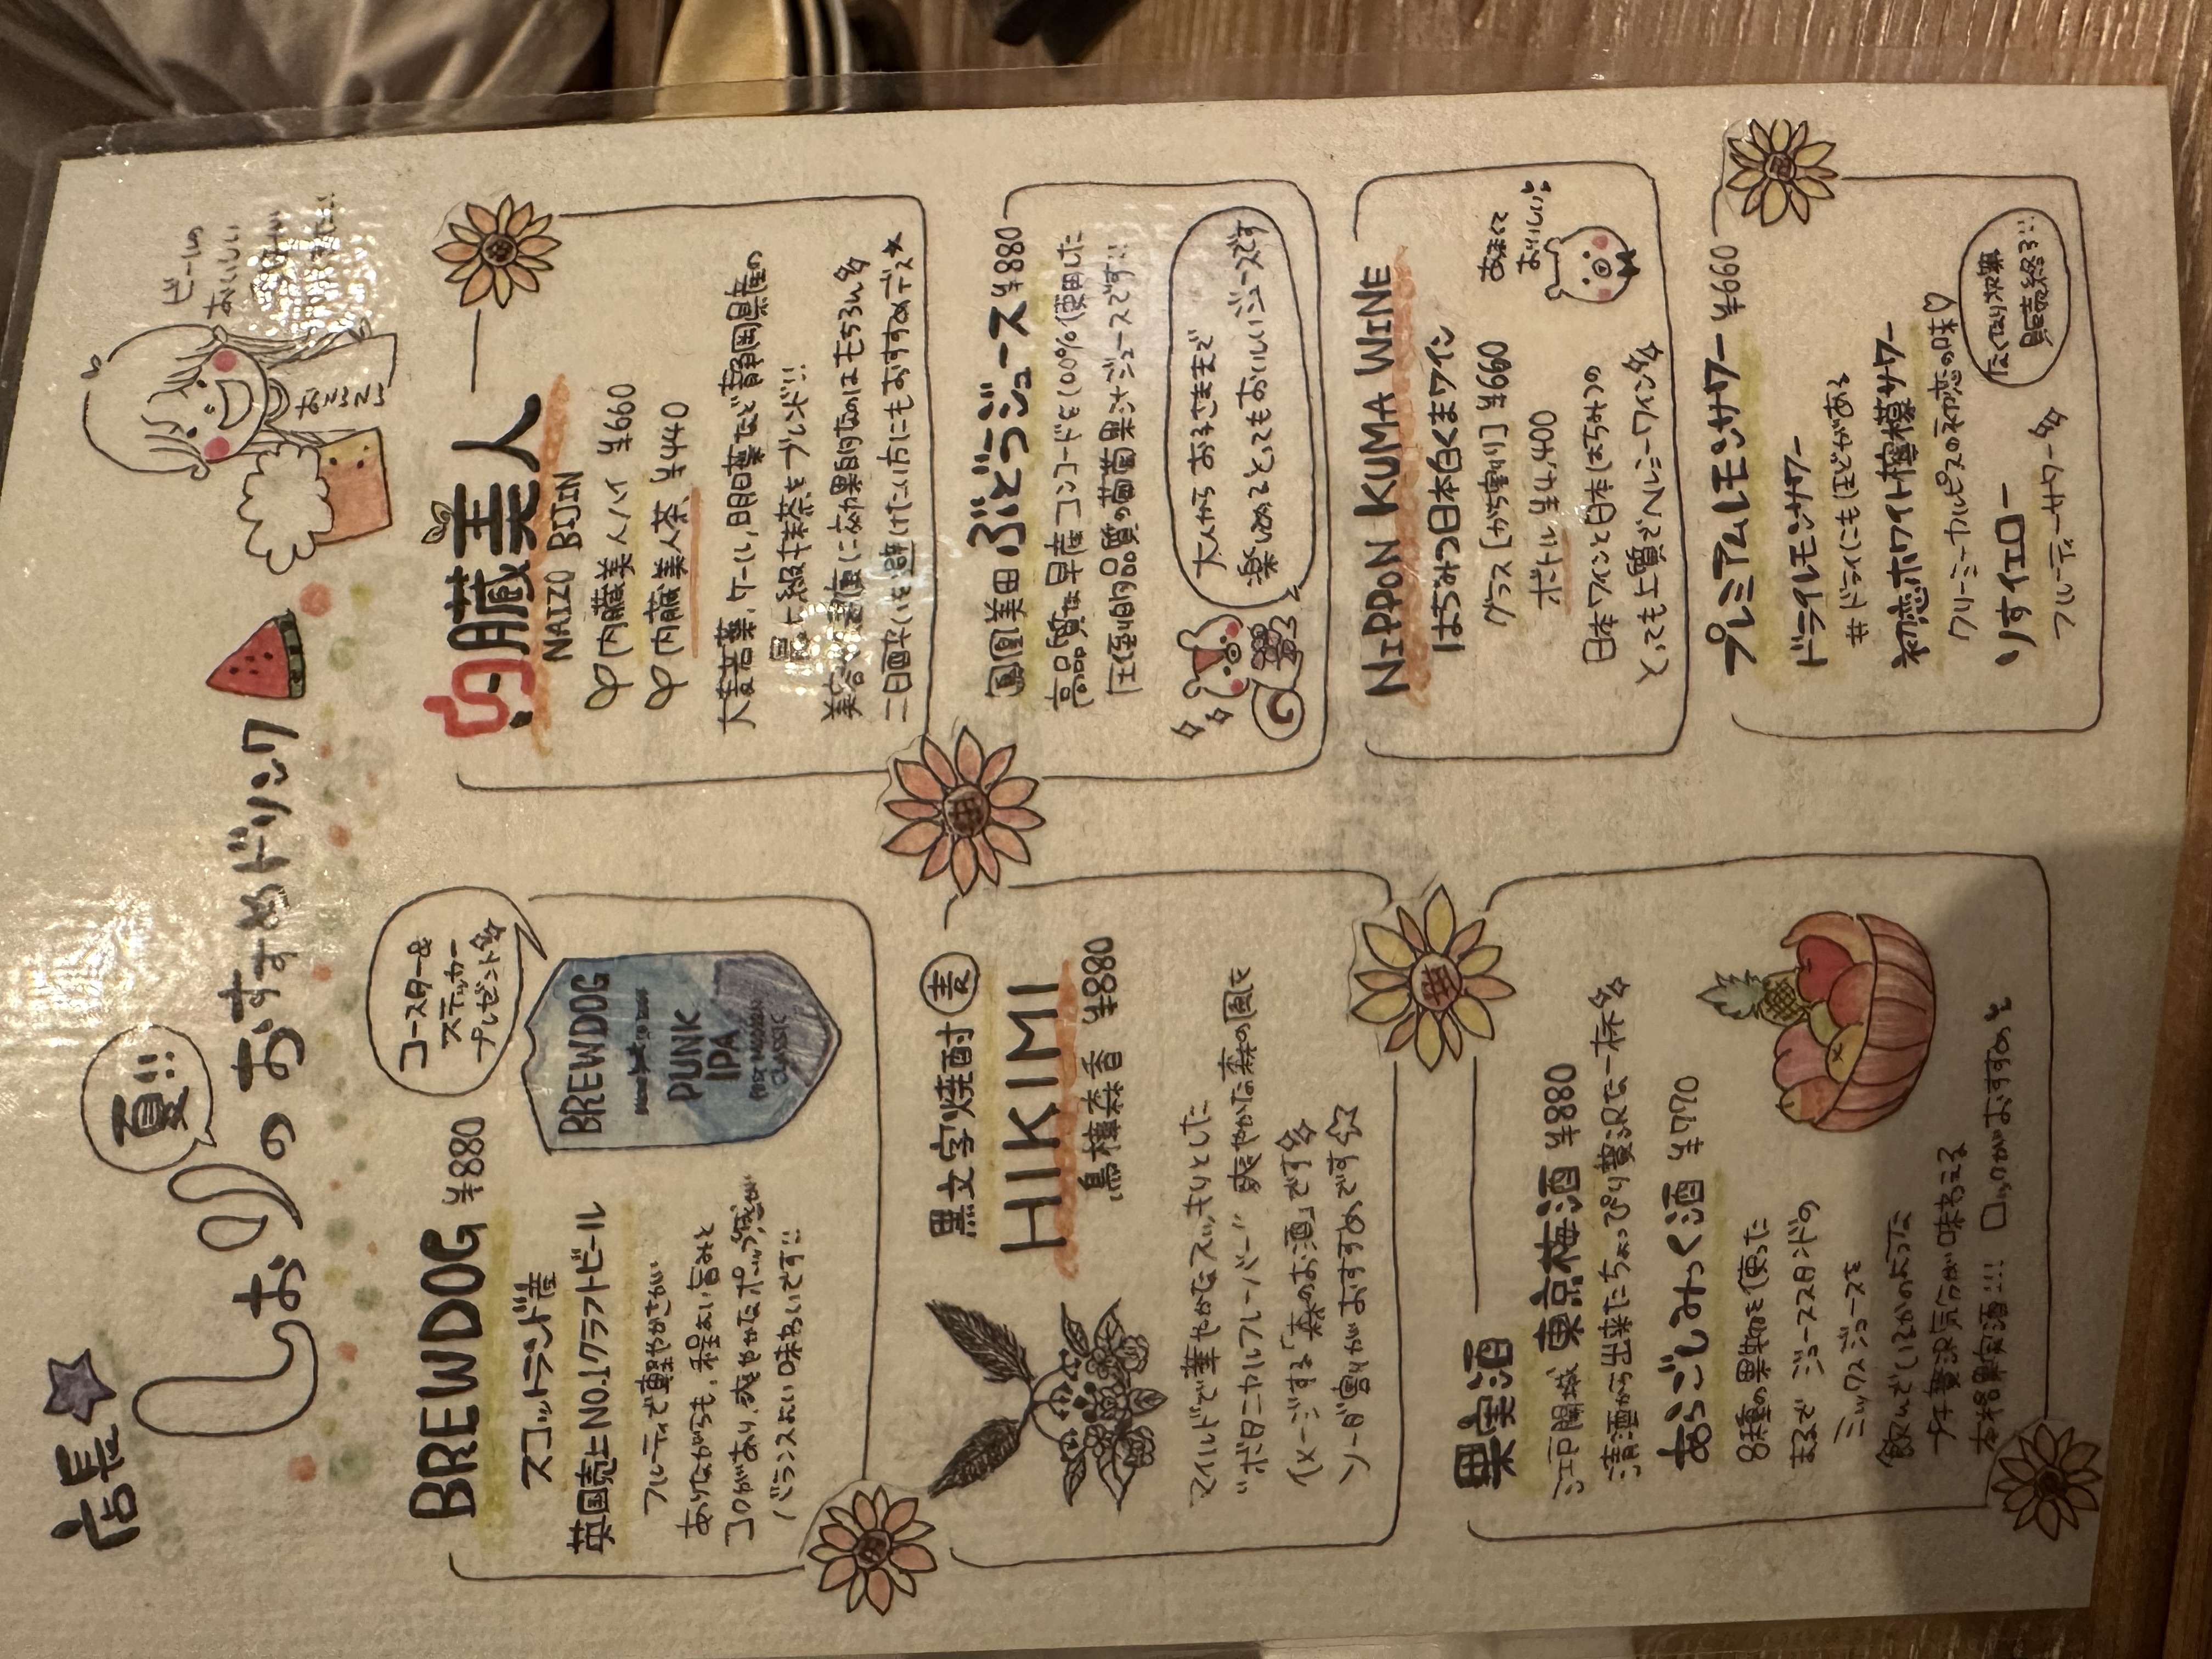 店長
しおりの おすすめドリンク
夏!!
ビールの
おいしい
BREWDOG ¥880
スコットランド産
英国売上NO.1クラフトビール
フルーティで軽やかさがい
ありながらも、程よい旨みと
コクがあり、爽やかなホップ感が
バランスよい味わいです!!
コースター&
ステッカー
プレゼント
BREWDOG
PUNK
IPA
POST MODERN
CLASSIC
黒文字焼酎 麦
HIKIMI
烏樟森香 ¥880
マイルドで華やかなスッキリとした
"ボタニカルフレーバー" 爽やかな森の風を
イメージする「森のお酒」です
ソーダ割りがおすすめです☆
果実酒
江戸開城 東京梅酒 ¥880
清酒から出来たちょっぴり贅沢な一杯
あらごしみっく酒 ¥770
8種の果物を使った
まるで ジューススタンドの
ミックスジュースを
飲んでいるかのような
プチ贅沢気分が味わえる
本格果実酒!!! ロックがおすすめ
内臓美人
NAIZO BIJIN
内臓美人ハイ ¥660
内臓美人茶 ¥440
大麦若葉、ケール、明日葉など静岡県産の
最上級抹茶をブレンド!!
美容や健康に効果的なのはもちろん
二日酔いを避けたい方にもおすすめデス★
鳳凰美田 ぶどうジュース ¥880
高品質な早産コンコードを100%使用した
圧倒的品質の葡萄果汁ジュースです!!
大人から お子さままで
楽しめるとてもおいしいジュースです
NIPPON KUMA WINE
はちみつ日本白くまワイン
グラス [がら割り] ¥660
ボトル ¥4,400
日本ワインと日本はちみつの
とっても上質でヘルシーワイン
あまくて
おいしい
プレミアムレモンサワー ¥660
ドライレモンサワー
# ドライにもほどがある
初恋ホワイト檸檬サワー
クリーミーカルピスの初恋の味♡
りすイエロー
フルーティーサワー
なくなり次第
販売終了!!